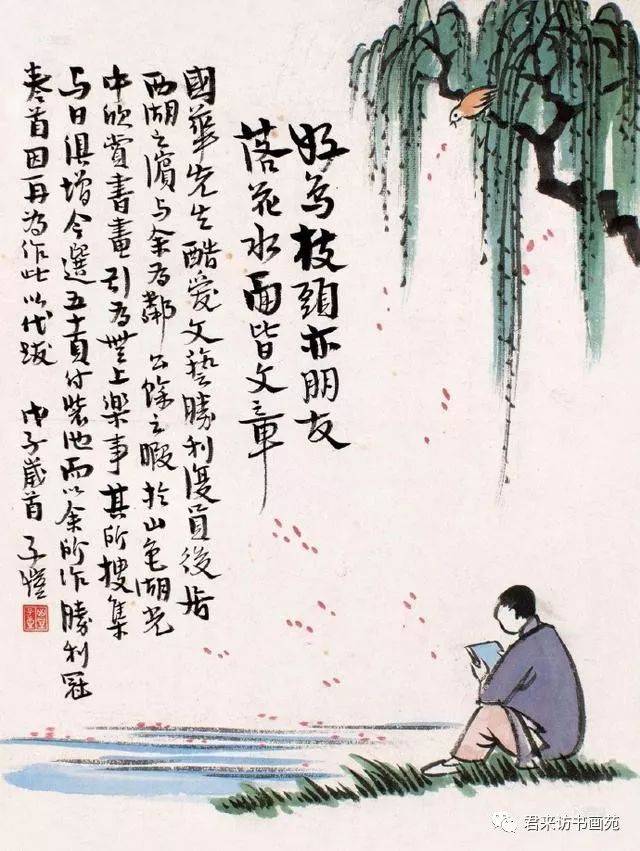 好鳥枝頭亦朋友
落花水面皆文章
國華先生酷愛文藝勝利復員後居
西湖之濱与余為鄰公餘之暇於山色湖光
中欣賞書畫引為無上樂事其所搜集
与日俱增今選五十頁付裝池而以余所作勝利冠
卷首因再為作此以代跋 戊子歲首 子愷
君来访书画苑